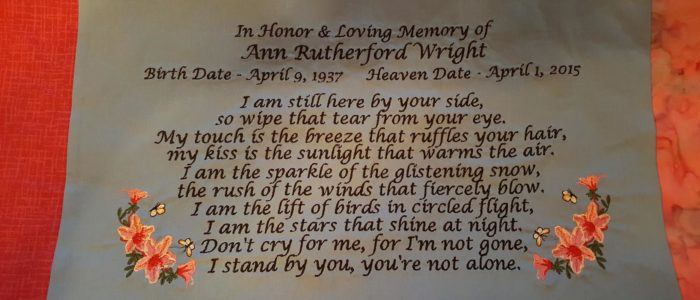 In Honor & Loving Memory of
Ann Rutherford Wright
Birth Date - April 9, 1937 Heaven Date - April 1, 2015
I am still here by your side,
so wipe that tear from your eye.
My touch is the breeze that ruffles your hair,
my kiss is the sunlight that warms the air.
I am the sparkle of the glistening snow,
the rush of the winds that fiercely blow.
I am the lift of birds in circled flight,
I am the stars that shine at night.
Don't cry for me, for I'm not gone,
I stand by you, you're not alone.